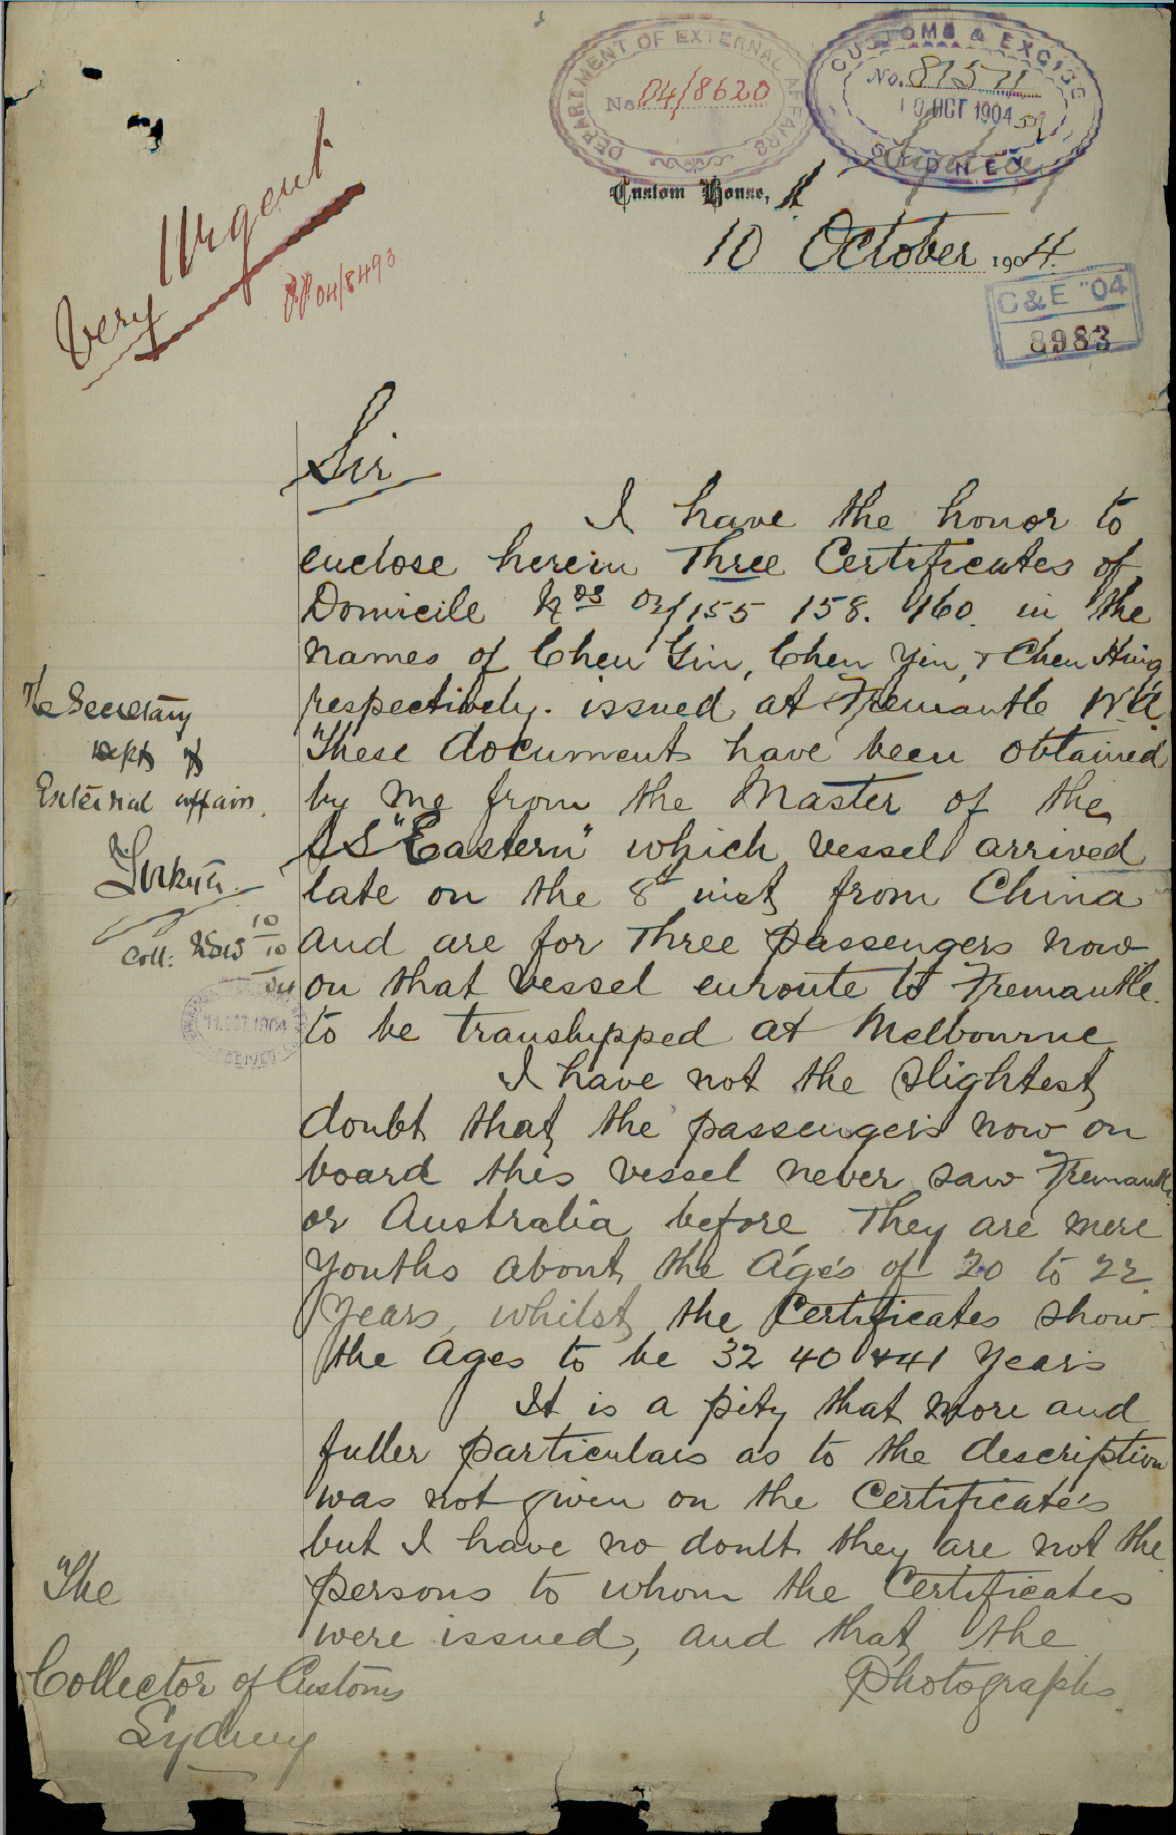 DEPARTMENT OF EXTERNAL AFFAIRS
No. 04/8620
CUSTOMS & EXCISE
No. 81571
10 OCT 1904
SYDNEY
Very Urgent
04/8493
Custom House,
10 October 1904.
C & E "04
8983
Sir
I have the honor to
enclose herein Three Certificates of
Domicile Nos 02/155 158. 160. in the
names of Chen Gin, Chen Yin, & Chen Hing
respectively. issued at Fremantle W.A.
These document have been obtained
by me from the Master of the
SS "Eastern" which vessel arrived
late on the 8th inst from China
and are for Three passengers now
on that vessel enroute to Fremantle.
to be transhipped at Melbourne
I have not the slightest
doubt that the passengers now on
board this vessel never saw Fremantle
or Australia before They are mere
youths about the Ages of 20 to 22
years, whilst the Certificates show
the Ages to be 32 40 & 41 years
It is a pity that more and
fuller particulars as to the description
was not given on the Certificates
but I have no doubt they are not the
persons to whom the Certificates
were issued, and that the
Photographs
The Secretary
Dept of
External Affairs.
Coll: NSW 10/10
04
11 OCT 1904
The
Collector of Customs
Sydney